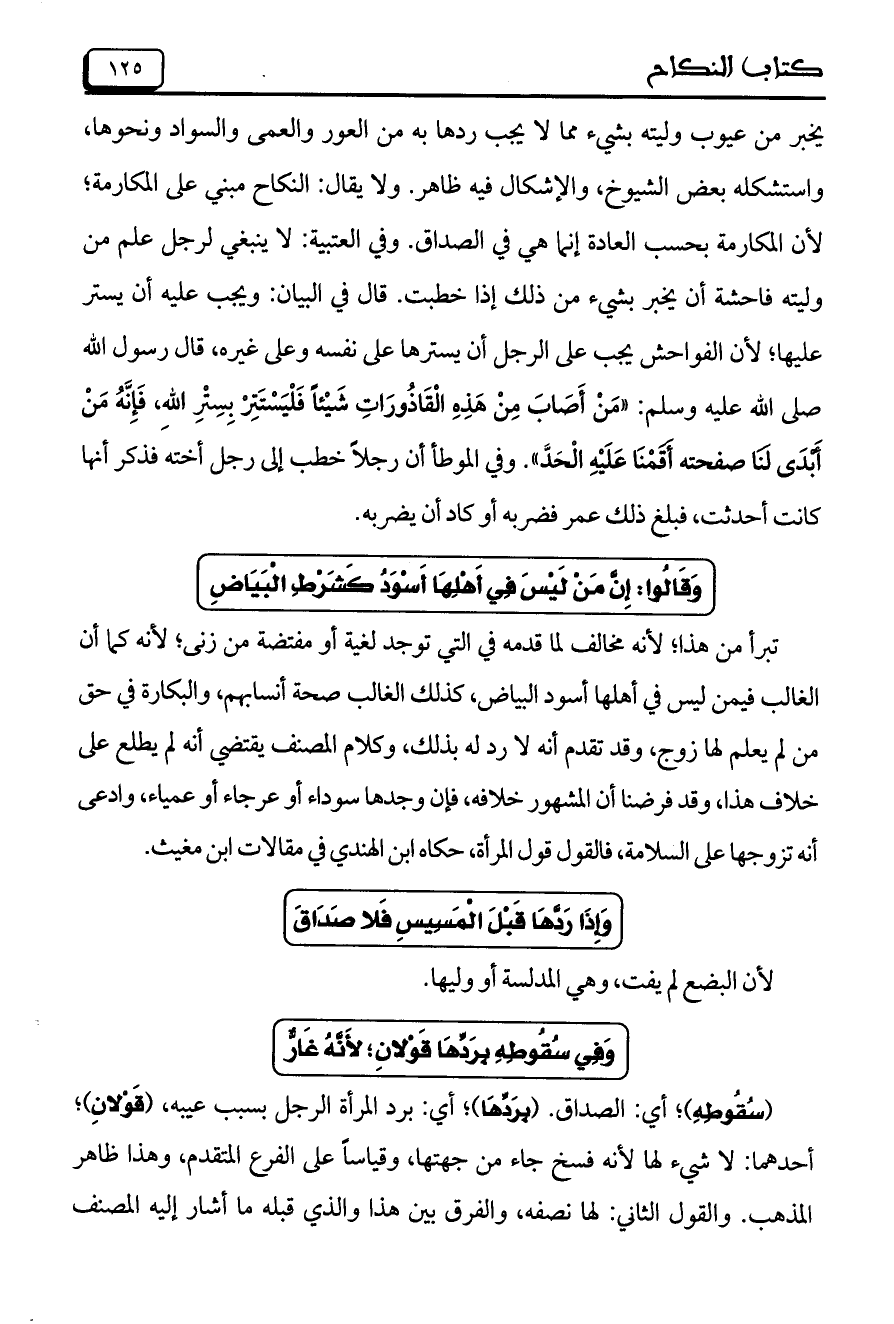 كتاب النكاح
١٢٥
يخبر من عيوب وليته بشيء مما لا يجب ردها به من العور والعمى والسواد ونحوها،
واستشكله بعض الشيوخ، والإشكال فيه ظاهر. ولا يقال: النكاح مبني على المكارمة؛
لأن المكارمة بحسب العادة إنما هي في الصداق. وفي العتبية: لا ينبغي لرجل علم من
وليته فاحشة أن يخبر بشيء من ذلك إذا خطبت. قال في البيان: ويجب عليه أن يستر
عليها؛ لأن الفواحش يجب على الرجل أن يسترها على نفسه وعلى غيره، قال رسول الله
صلى الله عليه وسلم: «مَنْ أَصَابَ مِنْ هَذِهِ الْقَاذُورَاتِ شَيْئاً فَلْيَسْتَتِرْ بِسِتْرِ اللهِ، فَإِنَّهُ مَنْ
أَبْدَى لَنَا صفحته أَقَمْنَا عَلَيْهِ الْحَدَّ». وفي الموطأ أن رجلاً خطب إلى رجل أخته فذكر أنها
كانت أحدثت، فبلغ ذلك عمر فضربه أو كاد أن يضربه.
وَقَالُوا: إِنَّ مَنْ لَيْسَ فِي أَهْلِهَا أَسْوَدُ كَشَرْطِ الْبَيَاضِ
تبرأ من هذا؛ لأنه مخالف لما قدمه في التي توجد لغية أو مفتضة من زنى؛ لأنه كما أن
الغالب فيمن ليس في أهلها أسود البياض، كذلك الغالب صحة أنسابهم، والبكارة في حق
من لم يعلم لها زوج، وقد تقدم أنه لا رد له بذلك، وكلام المصنف يقتضي أنه لم يطلع على
خلاف هذا، وقد فرضنا أن المشهور خلافه، فإن وجدها سوداء أو عرجاء أو عمياء، وادعى
أنه تزوجها على السلامة، فالقول قول المرأة، حكاه ابن الهندي في مقالات ابن مغيث.
وَإِذَا رَدَّهَا قَبْلَ الْمَسِيسِ فَلا صَدَاقَ
لأن البضع لم يفت، وهي المدلسة أو وليها.
وَفِي سُقُوطِهِ بِرَدِّهَا قَوْلانِ؛ لأَنَّهُ غَارٌّ
(سُقُوطِهِ)؛ أي: الصداق. (بِرَدِّهَا)؛ أي: برد المرأة الرجل بسبب عيبه، (قَوْلانِ)؛
أحدهما: لا شيء لها لأنه فسخ جاء من جهتها، وقياساً على الفرع المتقدم، وهذا ظاهر
المذهب. والقول الثاني: لها نصفه، والفرق بين هذا والذي قبله ما أشار إليه المصنف